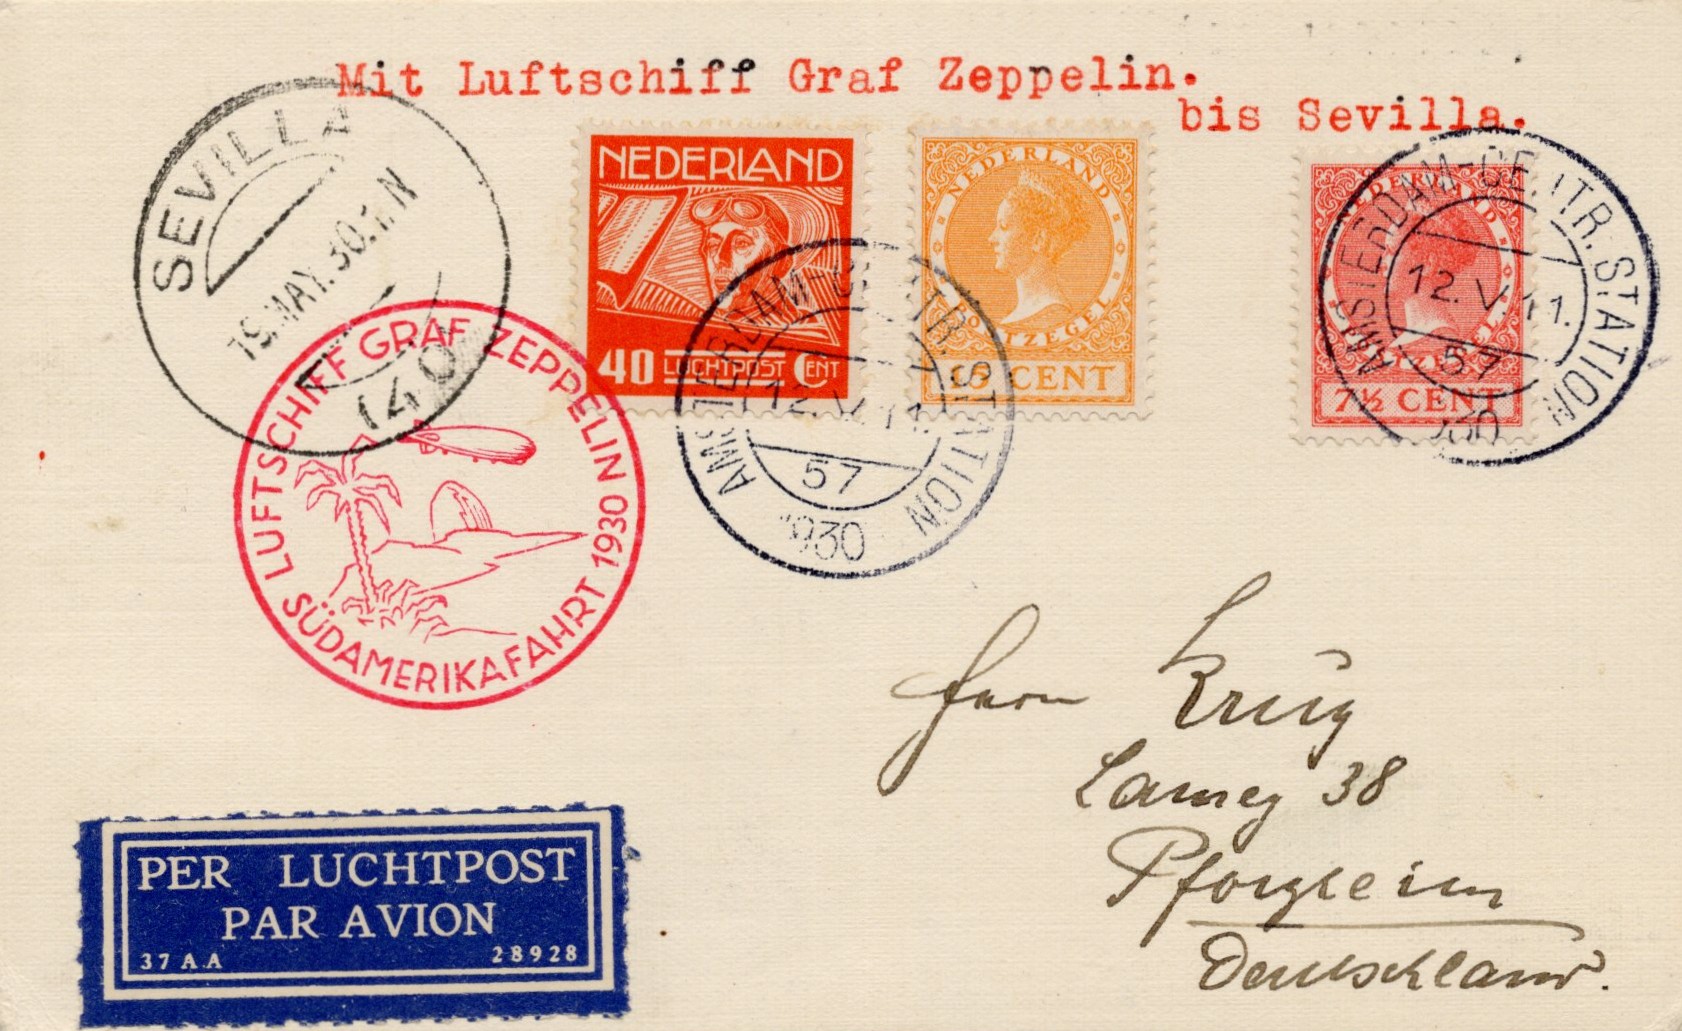 Mit Luftschiff Graf Zeppelin.
bis Sevilla.
SEVILLA
19.MAY.30.1 N
(40)
NEDERLAND
40 LUCHTPOST CENT
NEDERLAND
POSTZEGEL
15 CENT
NEDERLAND
POSTZEGEL
7½ CENT
AMSTERDAM-CENTR. STATION
12.V.11.
57
1930
AMSTERDAM-CENTR. STATION
12.V.11.
57
1930
LUFTSCHIFF GRAF ZEPPELIN 1930
SÜDAMERIKAFAHRT
Herrn Krüg
Lamey 38
Pforzheim
Deutschland.
PER LUCHTPOST
PAR AVION
37 A.A 28928